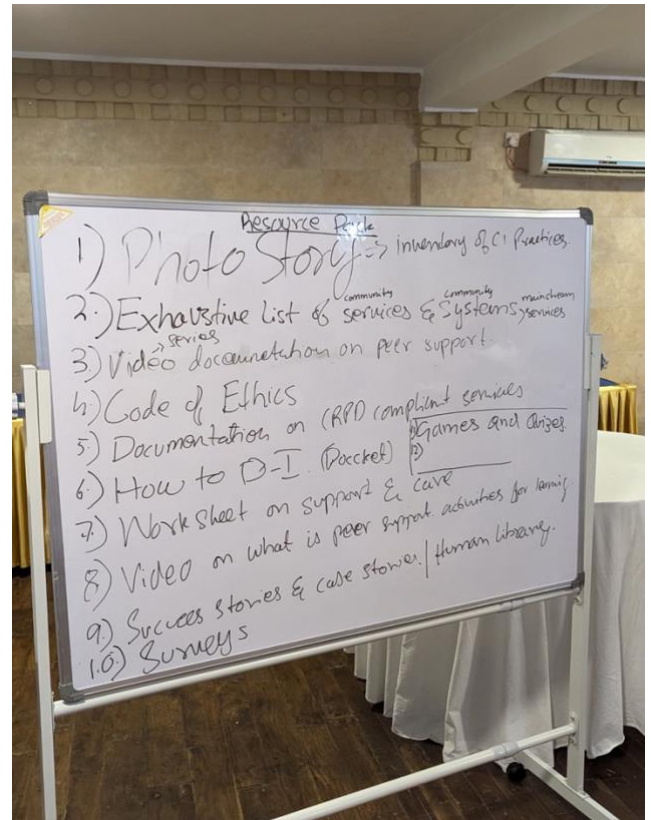 Resource Pack
1) Photo Story => inventory of CI Practices.
community community mainstream
2.) Exhaustive List of services & Systems, services
→ series
3.) Video documnetation on peer support.
4.) Code of Ethics
5.) Documentation on CRPD compliant services
6.) How to D-I. (Doccket)
1) Games and Quizes.
12)
7.) Work sheet on support & care
8) Video on what is peer support activities for learning.
9.) Success stories & case stories / Human library.
10.) Surveys